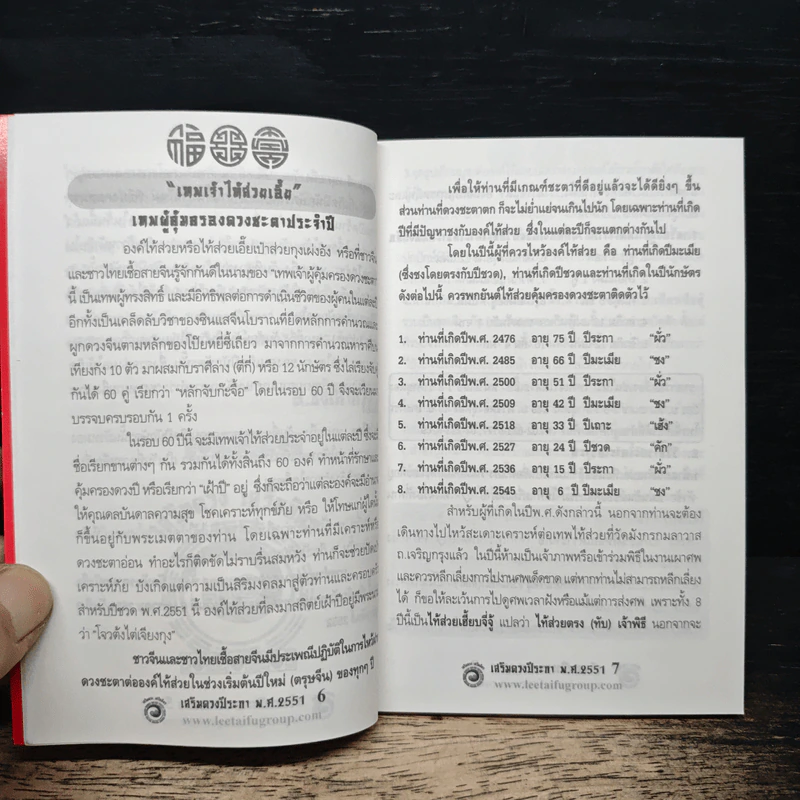 福 壽
"เทพเจ้าไท้ส่วยเอี๊ย"
เทพผู้คุ้มครองดวงชะตาประจำปี
องค์ไท้ส่วยหรือไท้ส่วยเอี๊ยเป่าส่วยกุงเผ่งอัง หรือที่ชาวจีน
และชาวไทยเชื้อสายจีนรู้จักกันดีในนามของ "เทพเจ้าผู้คุ้มครองดวงชะตา
นี้ เป็นเทพผู้ทรงสิทธิ์ และมีอิทธิพลต่อการดำเนินชีวิตของผู้คนในแต่ละปี
อีกทั้งเป็นเคล็ดลับวิชาของซินแสจีนโบราณที่ยึดหลักการคำนวณและ
ผูกดวงจีนตามหลักของโป๊ยหยี่ซี้เถียว มาจากการคำนวณหาราศีบน
เทียงกัง 10 ตัว มาผสมกับราศีล่าง (ตี่กี่) หรือ 12 นักษัตร ซึ่งไล่เรียงจับ
กันได้ 60 คู่ เรียกว่า "หลักจับก๊ะจื้อ" โดยในรอบ 60 ปี จึงจะเวียนมา
บรรจบครบรอบกัน 1 ครั้ง
ในรอบ 60 ปีนี้ จะมีเทพเจ้าไท้ส่วยประจำอยู่ในแต่ละปี ซึ่งจะมี
ชื่อเรียกขานต่างๆ กัน รวมกันได้ทั้งสิ้นถึง 60 องค์ ทำหน้าที่รักษาและ
คุ้มครองดวงปี หรือเรียกว่า "เฝ้าปี" อยู่ ซึ่งก็จะถือว่าแต่ละองค์จะมีอำนาจ
ให้คุณดลบันดาลความสุข โชคเคราะห์ทุกข์ภัย หรือ ให้โทษแก่ผู้ใดนั้น
ก็ขึ้นอยู่กับพระเมตตาของท่าน โดยเฉพาะท่านที่มีเคราะห์หรือ
ดวงชะตาอ่อน ทำอะไรก็ติดขัดไม่ราบรื่นสมหวัง ท่านก็จะช่วยปัดเป่า
เคราะห์ภัย บังเกิดแต่ความเป็นสิริมงคลมาสู่ตัวท่านและครอบครัว
สำหรับปีชวด พ.ศ.2551 นี้ องค์ไท้ส่วยที่ลงมาสถิตย์เฝ้าปีอยู่มีพระนาม
ว่า "โจวตั้งไต่เจียงกุง"
ชาวจีนและชาวไทยเชื้อสายจีนมีประเพณีปฏิบัติในการไหว้
ดวงชะตาต่อองค์ไท้ส่วยในช่วงเริ่มต้นปีใหม่ (ตรุษจีน) ของทุกๆ ปี
เสริมดวงปีระกา พ.ศ.2551 6
www.leetaifugroup.com
เพื่อให้ท่านที่มีเกณฑ์ชะตาที่ดีอยู่แล้วจะได้ดียิ่งๆ ขึ้น
ส่วนท่านที่ดวงชะตาตก ก็จะไม่ย่ำแย่จนเกินไปนัก โดยเฉพาะท่านที่เกิด
ปีที่มีปัญหาชงกับองค์ไท้ส่วย ซึ่งในแต่ละปีก็จะแตกต่างกันไป
โดยในปีนี้ผู้ที่ควรไหว้องค์ไท้ส่วย คือ ท่านที่เกิดปีมะเมีย
(ซึ่งชงโดยตรงกับปีชวด), ท่านที่เกิดปีชวดและท่านที่เกิดในปีนักษัตร
ดังต่อไปนี้ ควรพกยันต์ไท้ส่วยคุ้มครองดวงชะตาติดตัวไว้
1. ท่านที่เกิดปีพ.ศ. 2476 อายุ 75 ปี ปีระกา "ผั่ว"
2. ท่านที่เกิดปีพ.ศ. 2485 อายุ 66 ปี ปีมะเมีย "ชง"
3. ท่านที่เกิดปีพ.ศ. 2500 อายุ 51 ปี ปีระกา "ผั่ว"
4. ท่านที่เกิดปีพ.ศ. 2509 อายุ 42 ปี ปีมะเมีย "ชง"
5. ท่านที่เกิดปีพ.ศ. 2518 อายุ 33 ปี ปีเถาะ "เฮ้ง"
6. ท่านที่เกิดปีพ.ศ. 2527 อายุ 24 ปี ปีชวด "คัก"
7. ท่านที่เกิดปีพ.ศ. 2536 อายุ 15 ปี ปีระกา "ผั่ว"
8. ท่านที่เกิดปีพ.ศ. 2545 อายุ 6 ปี ปีมะเมีย "ชง"
สำหรับผู้ที่เกิดในปีพ.ศ.ดังกล่าวนี้ นอกจากท่านจะต้อง
เดินทางไปไหว้สะเดาะเคราะห์ต่อเทพไท้ส่วยที่วัดมังกรกมลาวาส
ถ.เจริญกรุงแล้ว ในปีนี้ห้ามเป็นเจ้าภาพหรือเข้าร่วมพิธีในงานเผาศพ
และควรหลีกเลี่ยงการไปงานศพเด็ดขาด แต่หากท่านไม่สามารถหลีกเลี่ยง
ได้ ก็ขอให้ละเว้นการไปดูศพเวลาฝังหรือแม้แต่การส่งศพ เพราะทั้ง 8
ปีนี้เป็นไท้ส่วยเฮี้ยบจี้จู้ แปลว่า ไท้ส่วยตรง (ทับ) เจ้าพิธี นอกจากจะ
เสริมดวงปีระกา พ.ศ.2551 7
www.leetaifugroup.com